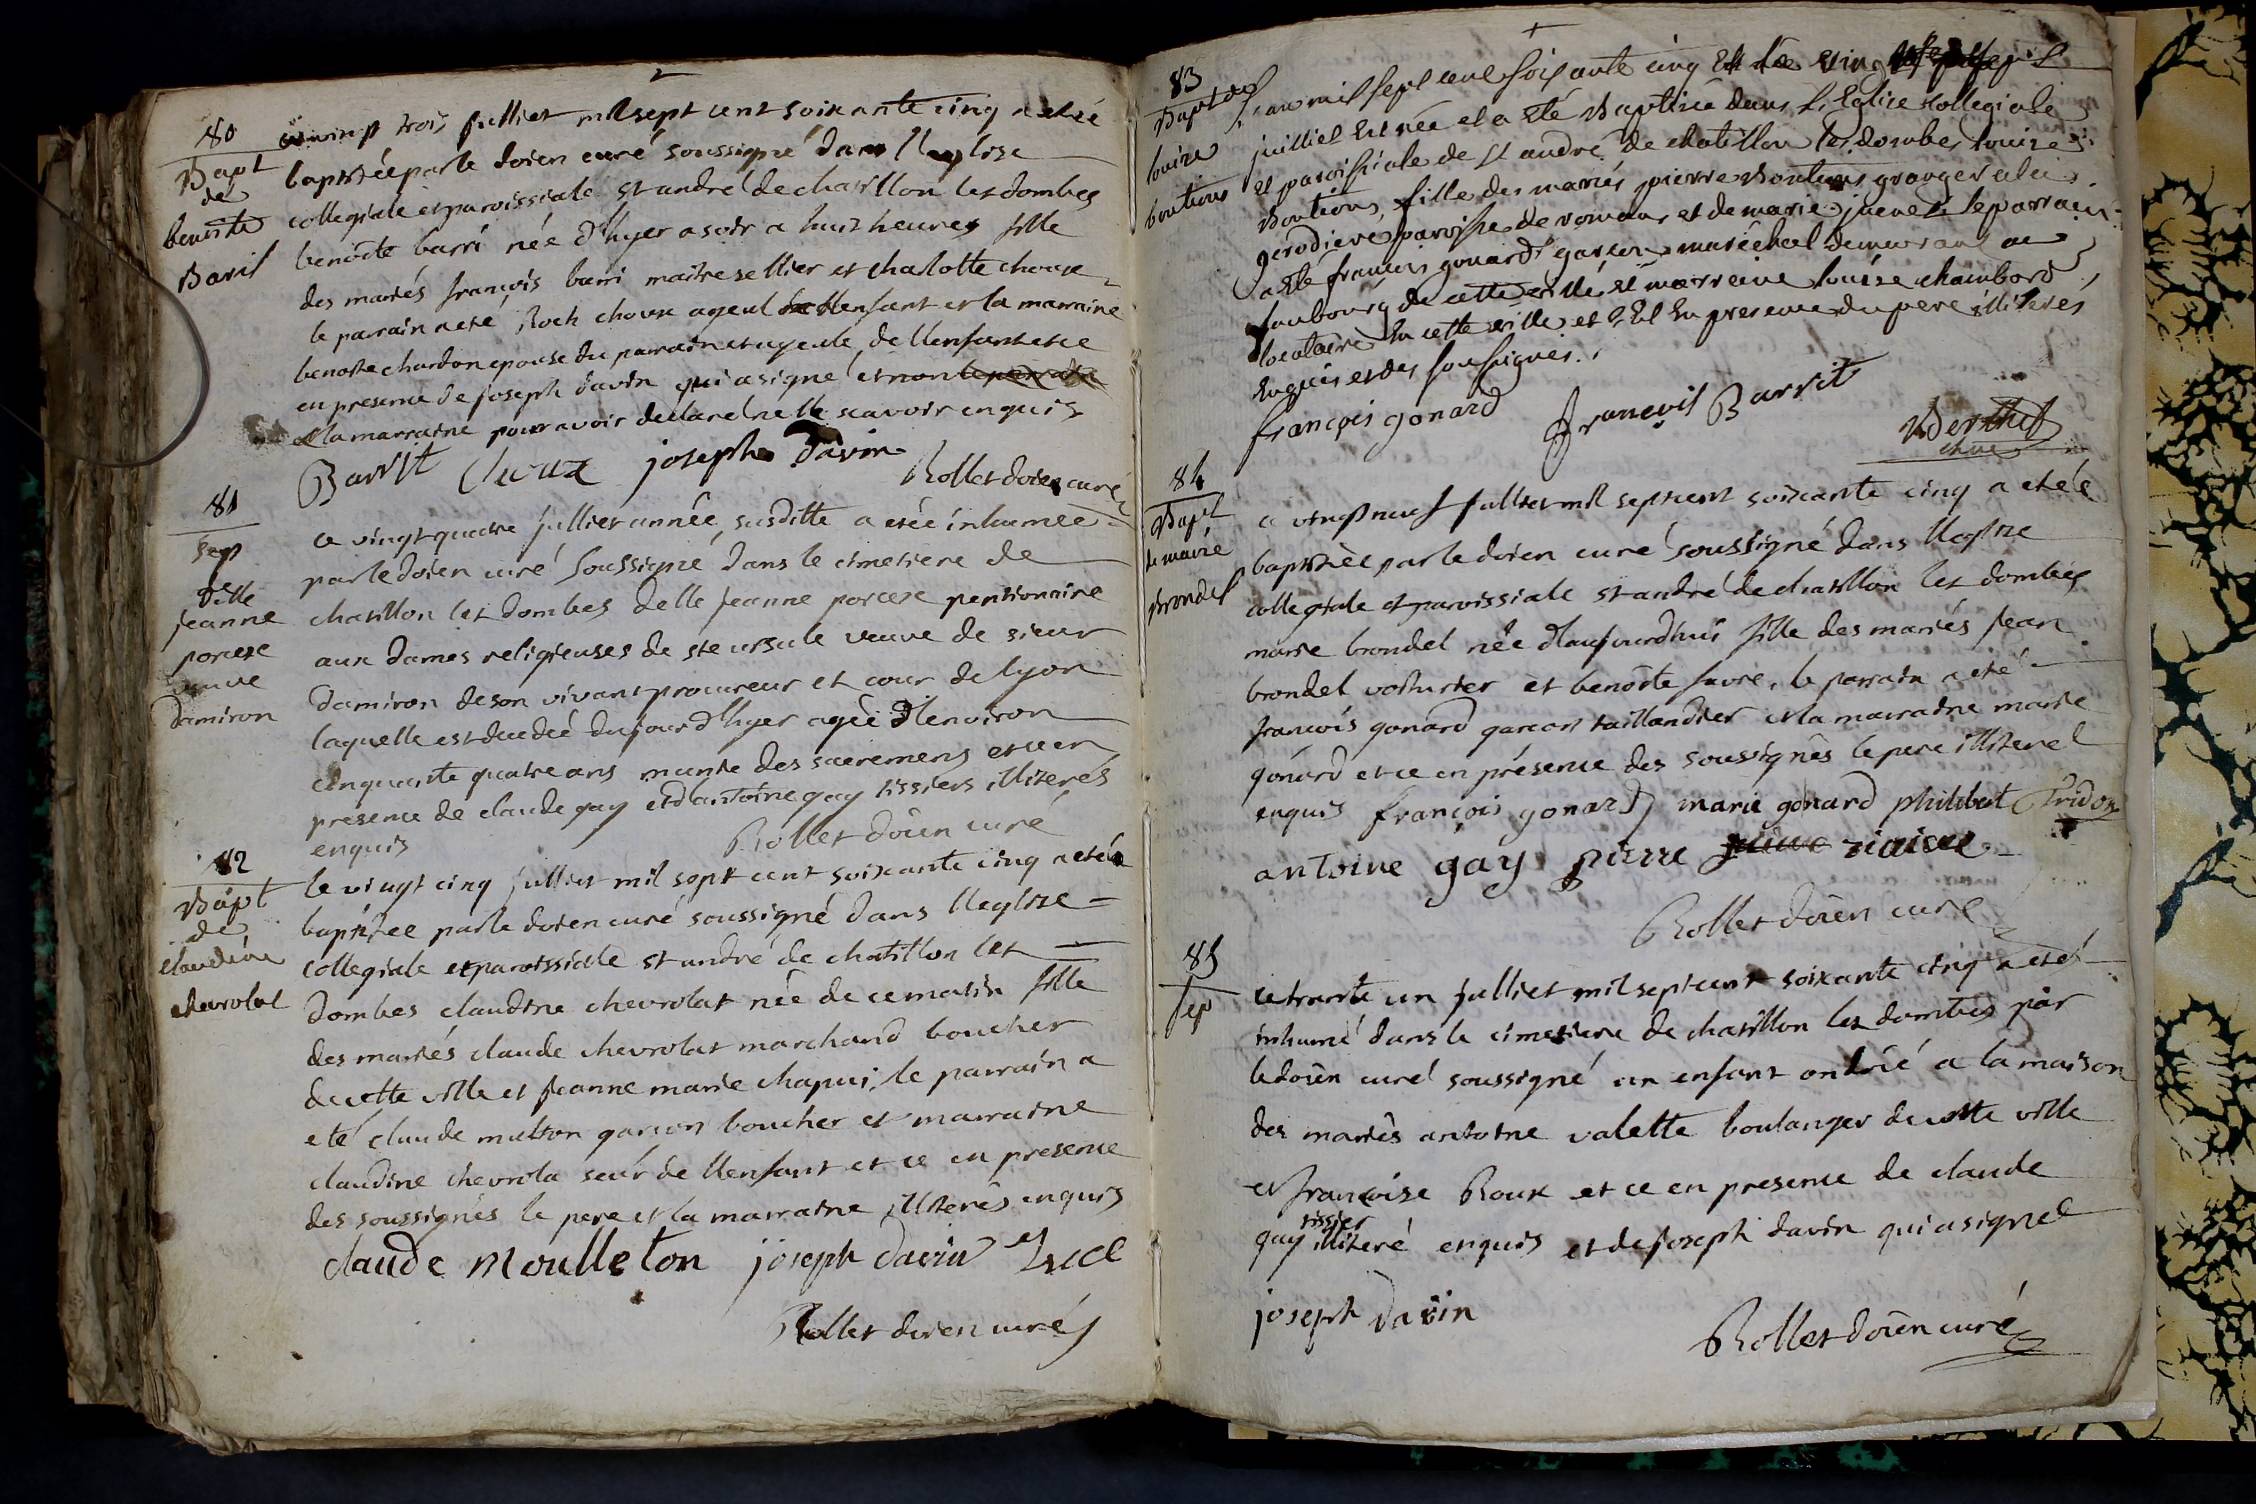 80
Bapt
de
benoite
Baril
ce vingt trois jullier mil sept cent soixante cinq a etée
baptisée par le doien curé soussigné dans lleglise
collegiale et paroissiale st andré de chatillon les dombes
benoite barri née d'hyer a soir a huit heures fille
des mariés francois barri maitre sellier et chalotte choux
le parrain a eté Roch choux ayeul de llenfant et la marraine
benoite chardon epouse du parrain et ayeule de llenfant et ce
en presence de joseph davin qui a signé et non le parrain
et la marraine pour avoir declaré ne le scavoir enquis
Barrit Choux joseph Davin
Rollet doien curé
81
sep
Delle
jeanne
porcese
veuve
damiron
ce vingt quatre jullier année susditte a etée inhumée
par le doien curé soussigné dans le cimetiere de
chatillon les dombes delle jeanne porcese pentionnaire
aux dames religieuses de ste ursule veuve de sieur
damiron de son vivant procureur et cour de lyon
laquelle est decedée du jour d'hyer agée d'lenviron
cinquante quatre ans munie des sacremens et ce en
presence de claude gay et d'antoine gay tissiers illiterés
enquis
Rollet doien curé
82
Bapt
de
claudine
chevrolat
le vingt cinq jullier mil sept cent soixante cinq a etée
baptisée par le doien curé soussigné dans lleglise
collegiale et paroissiale st andré de chatillon les
dombes claudine chevrolat née de ce matin fille
des mariés claude chevrolat marchand boucher
de cette ville et jeanne marie chapui, le parrain a
eté claude multon garçon boucher et marraine
claudine chevrola seur de llenfant et ce en presence
des soussignés le pere et la marraine illiterés enquis
claude Moulleton joseph davin
Rollet doien curé
83
Bapt de
louize
boutions
L'an mil sept cent soixante cinq et le vingt sept
juilliet est née et a été Baptisée dans L'Eglise Collegiale
et paroissiale de St andré de chatillon les dombes louize
Boutions, fille des mariés pierre Boutions granger a la
gerodiere paroisse de romans et de marie juenet le parrain
a été françois gonard garçon maréchal demeurant au
faubourg de cette ville et marreine louise chambord
locataire en cette ville et ce en presence du pere illiterés
Enquis et des soussignés.
françois gonard François Barrit
84
Bapt
de marie
Brondel
ce vingt neuf jullier mil sept cent soixante cinq a etée
baptisée par le doien curé soussigné dans lleglise
collegiale et paroissiale st andré de chatillon les dombes
marie brondel née d'laujourdhui fille des mariés jean
brondel voiturier et benoite favre, le parrain a eté
francois gonard garçon taillandier et la marraine marie
gonard et ce en présence des soussignés le pere illiteré
enquis françois gonard marie gonard philibert Pridon
antoine gay pierre
Rollet doien curé
85
sep
ce trante un jullier mil sept cent soixante cinq a eté
inhumé dans le cimetiere de chatillon les dombes par
le doien curé soussigné un enfant ondoié a la maison
des mariés antoine valette boulanger de cette ville
et francoise Roux et ce en presence de claude
gay tissier illiteré enquis et de joseph davin qui a signé
joseph Davin
Rollet doien curé